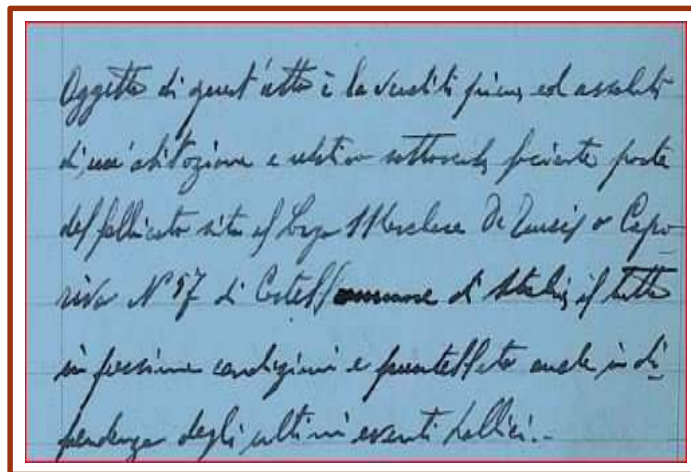 Oggetto di quest'atto è la vendita piena ed assoluta
di un'abitazione e relativo sottoscala facienti parte
del fabbricato sito al Largo De Turris o Capo-
riva N° 57 di Castellammare di Stabia, il tutto
in pessime condizioni e puntellato anche in di-
pendenza degli ultimi eventi bellici.-